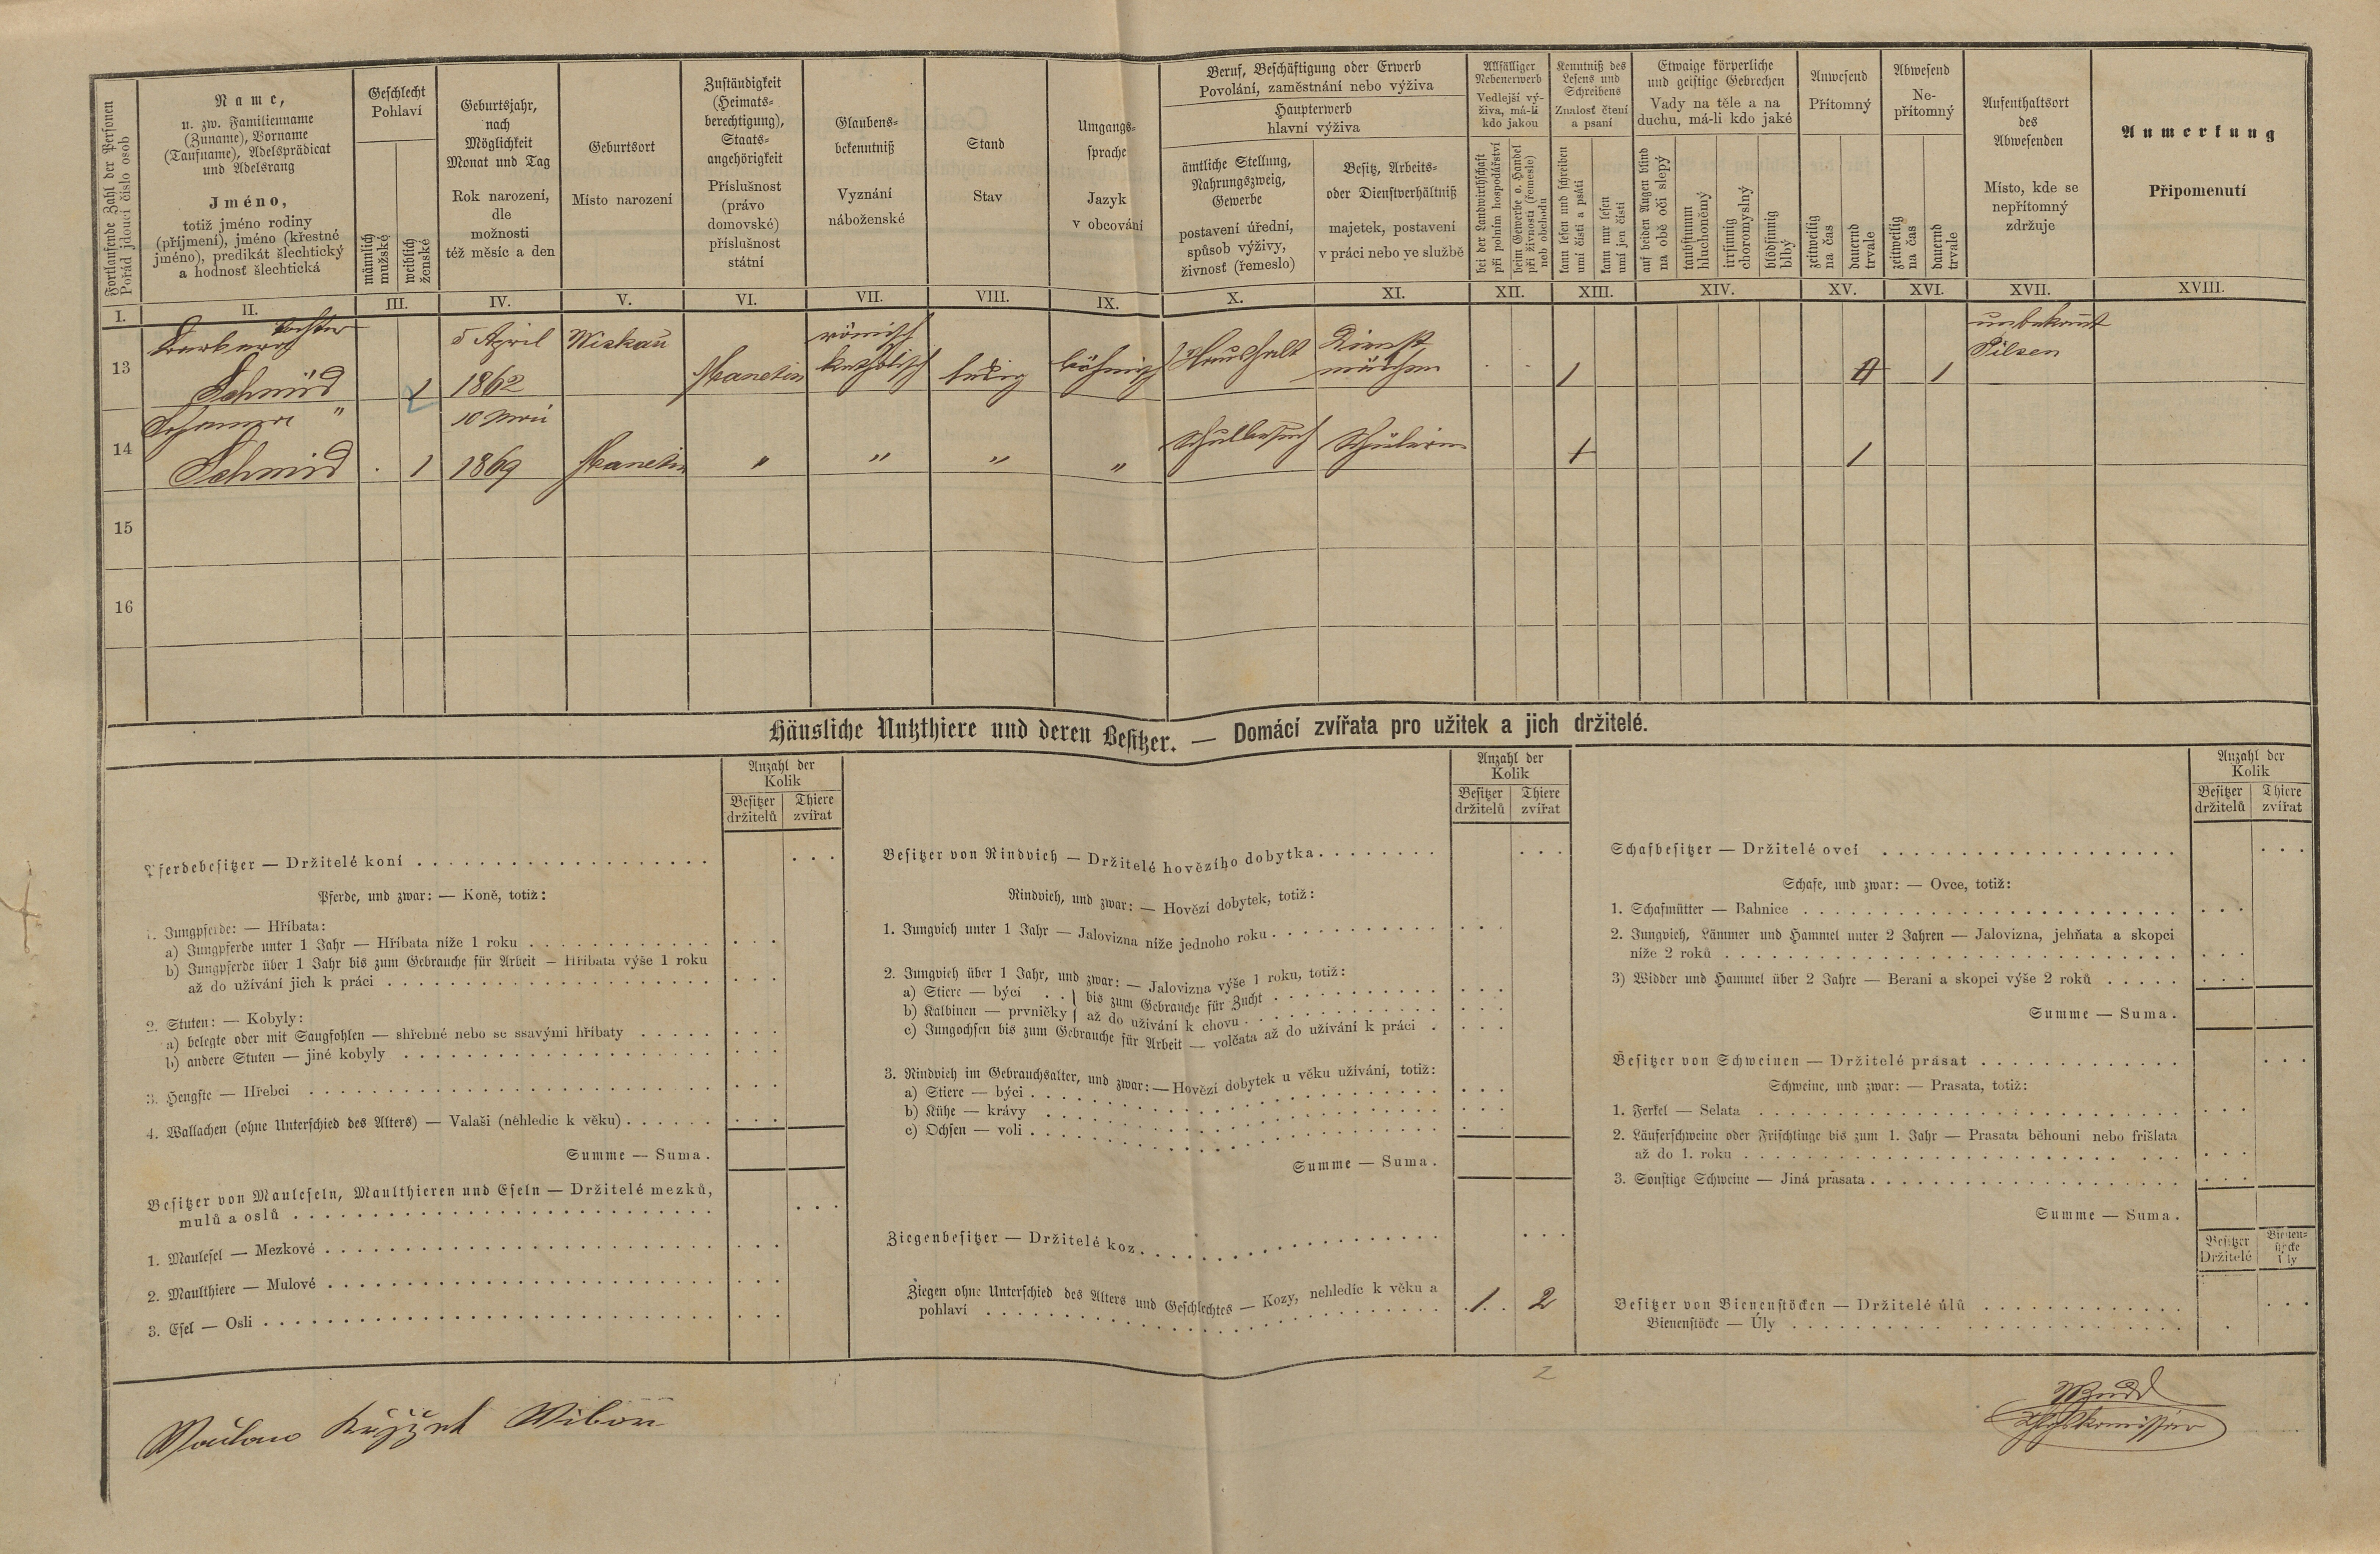 Fortlaufende Zahl der Personen
Pořád jdoucí číslo osob
Name,
u. zw. Familienname
(Zuname), Vorname
(Taufname), Adelsprädicat
und Adelsrang
Jméno,
totiž jméno rodiny
(příjmení), jméno (křestné
jméno), predikát šlechtický
a hodnosť šlechtická
Geschlecht
Pohlaví
männlich
mužské
weiblich
ženské
Geburtsjahr,
nach
Möglichkeit
Monat und Tag
Rok narození,
dle
možnosti
též měsíc a den
Geburtsort
Místo narození
Zuständigkeit
(Heimats-
berechtigung),
Staats-
angehörigkeit
Příslušnost
(právo
domovské)
příslušnost
státní
Glaubens-
bekenntniß
Vyznání
náboženské
Stand
Stav
Umgangs-
sprache
Jazyk
v obcování
Beruf, Beschäftigung oder Erwerb
Povolání, zaměstnání nebo výživa
Haupterwerb
hlavní výživa
ämtliche Stellung,
Nahrungszweig,
Gewerbe
postavení úřední,
spůsob výživy,
živnosť (řemeslo)
Besitz, Arbeits-
oder Dienstverhältniß
majetek, postavení
v práci nebo ve službě
Allfälliger
Nebenerwerb
Vedlejší vý-
živa, má-li
kdo jakou
bei der Landwirthschaft
při polním hospodářství
beim Gewerbe o. Handel
při živnosti (řemesle)
neb obchodu
Kenntniß des
Lesens und
Schreibens
Znalosť čtení
a psaní
kann lesen und schreiben
umí čísti a psáti
kann nur lesen
umí jen čísti
Etwaige körperliche
und geistige Gebrechen
Vady na těle a na
duchu, má-li kdo jaké
auf beiden Augen blind
na obě oči slepý
taubstumm
hluchoněmý
irrsinnig
choromyslný
blödsinnig
blbý
Anwesend
Přítomný
zeitweilig
na čas
dauernd
trvale
Abwesend
Ne-
přítomný
zeitweilig
na čas
dauernd
trvale
Aufenthaltsort
des
Abwesenden
Místo, kde se
nepřítomný
zdržuje
Anmerkung
Připomenutí
I. II. III. IV. V. VI. VII. VIII. IX. X. XI. XII. XIII. XIV. XV. XVI. XVII. XVIII.
Tochter 5 April römisch Dienst unbekannt
13 Barbara Schmid 1 1862 katholisch ledig böhmisch Haushalt 1 1 Pilsen
10 Mai
14 Schmid 1 1869 Manetin " " " " Schulbesuch Schülerin 1 1
15
16
Häusliche Nutzthiere und deren Besitzer. — Domácí zvířata pro užitek a jich držitelé.
Anzahl der
Kolik
Besitzer
držitelů
Thiere
zvířat
Pferdebesitzer — Držitelé koní
Pferde, und zwar: — Koně, totiž:
1. Jungpferde: — Hříbata:
a) Jungpferde unter 1 Jahr — Hříbata níže 1 roku
b) Jungpferde über 1 Jahr bis zum Gebrauche für Arbeit — Hříbata výše 1 roku
až do užívání jich k práci
2. Stuten: — Kobyly:
a) belegte oder mit Saugfohlen — shřebné nebo se ssavými hříbaty
b) andere Stuten — jiné kobyly
3. Hengste — Hřebci
4. Wallachen (ohne Unterschied des Alters) — Valaši (nehledíc k věku)
Summe — Suma.
Besitzer von Mauleseln, Maulthieren und Eseln — Držitelé mezků,
mulů a oslů
1. Maulesel — Mezkové
2. Maulthiere — Mulové
3. Esel — Osli
Anzahl der
Kolik
Besitzer
držitelů
Thiere
zvířat
Besitzer von Rindvieh — Držitelé hovězího dobytka
Rindvieh, und zwar: — Hovězí dobytek, totiž:
1. Jungvieh unter 1 Jahr — Jalovizna níže jednoho roku
2. Jungvieh über 1 Jahr, und zwar: — Jalovizna výše 1 roku, totiž:
a) Stiere — býci . . } bis zum Gebrauche für Zucht
b) Kalbinen — prvničky } až do užívání k chovu
c) Jungochsen bis zum Gebrauche für Arbeit — volčata až do užívání k práci
3. Rindvieh im Gebrauchsalter, und zwar: — Hovězí dobytek u věku užívání, totiž:
a) Stiere — býci
b) Kühe — krávy
c) Ochsen — voli
Summe — Suma.
Ziegenbesitzer — Držitelé koz
Ziegen ohne Unterschied des Alters und Geschlechtes — Kozy, nehledíc k věku a
pohlaví 1 2
2
Anzahl der
Kolik
Besitzer
držitelů
Thiere
zvířat
Schafbesitzer — Držitelé ovcí
Schafe, und zwar: — Ovce, totiž:
1. Schafmütter — Bahnice
2. Jungvieh, Lämmer und Hammel unter 2 Jahren — Jalovizna, jehňata a skopci
níže 2 roků
3) Widder und Hammel über 2 Jahre — Berani a skopci výše 2 roků
Summe — Suma.
Besitzer von Schweinen — Držitelé prasat
Schweine, und zwar: — Prasata, totiž:
1. Ferkel — Selata
2. Läuferschweine oder Frischlinge bis zum 1. Jahr — Prasata běhouni nebo frišlata
až do 1. roku
3. Sonstige Schweine — Jiná prasata
Summe — Suma.
Besitzer
Držitelé
Bienen-
stöcke
Úly
Besitzer von Bienenstöcken — Držitelé úlů
Bienenstöcke — Úly